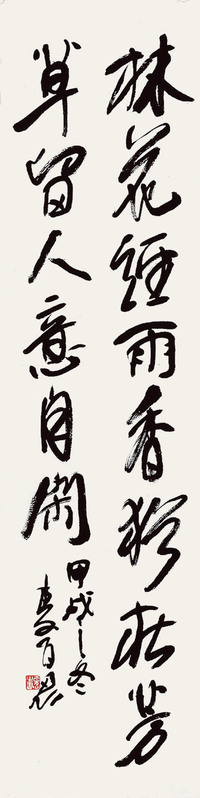 林花經雨香猶在芳
草留人意自閑
甲戌之冬